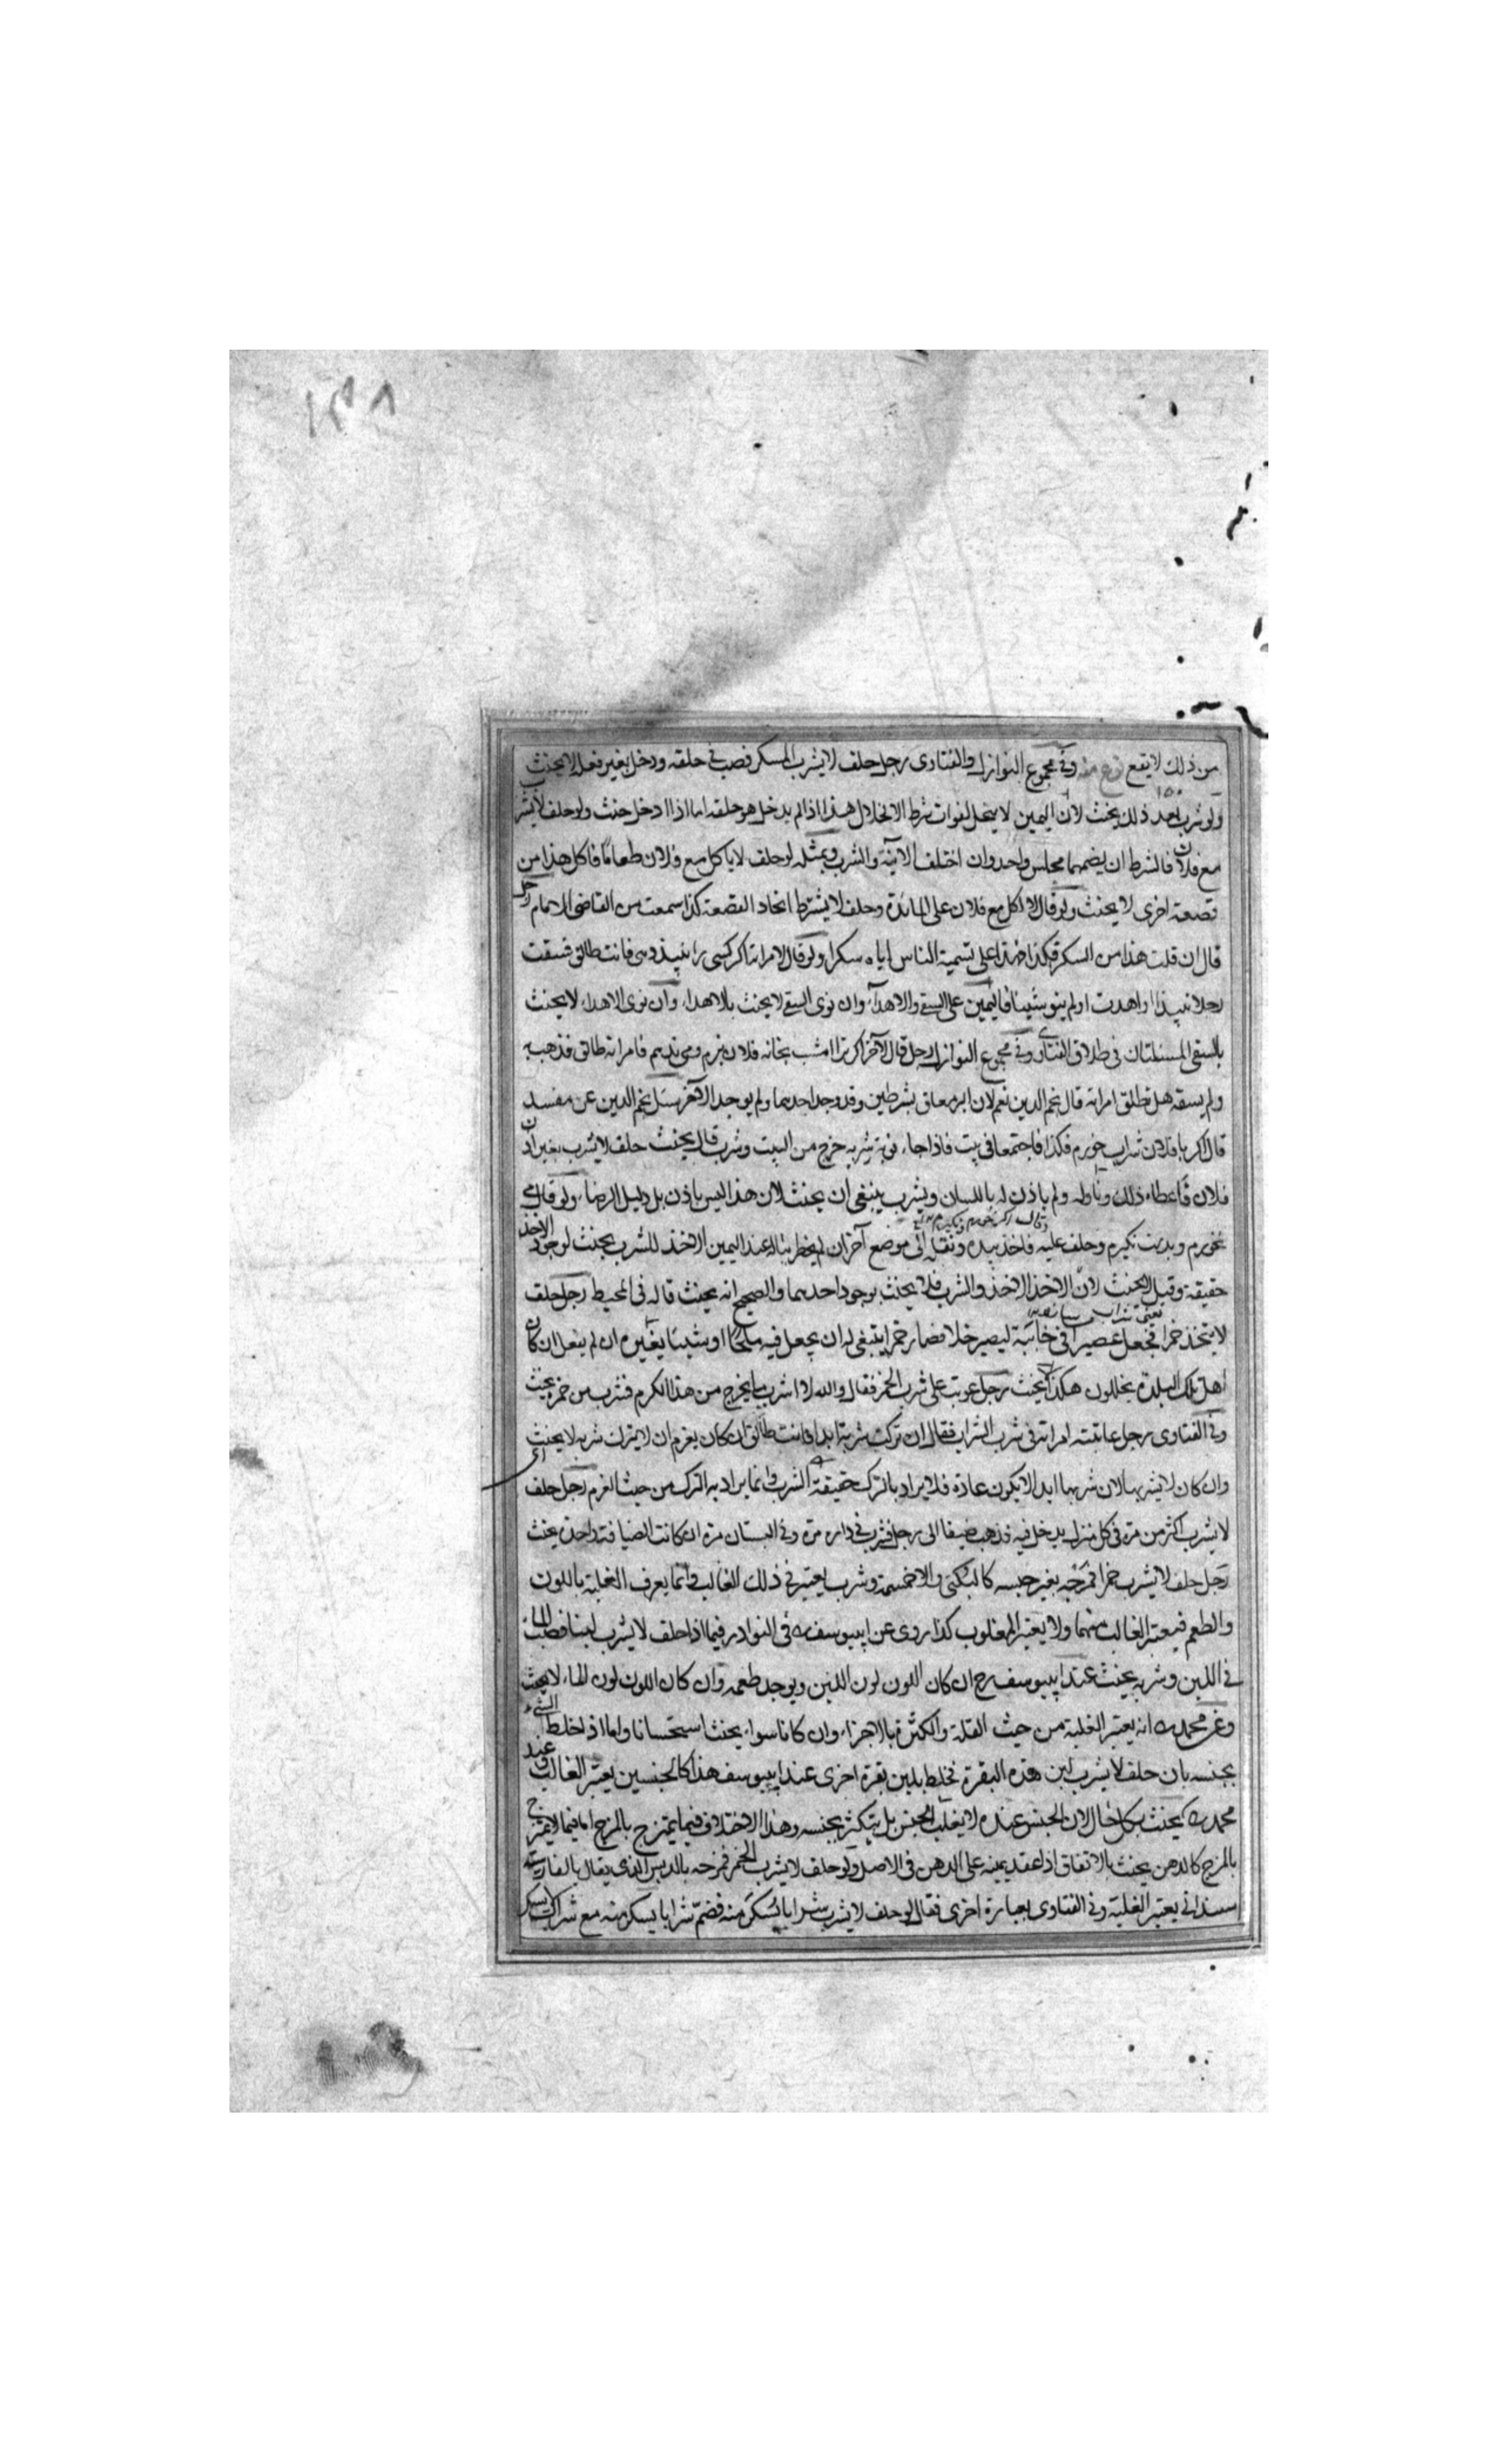 من ذلك لا يقع نوع منه وفي مجموع النوازل والفتاوى رجل حلف لا يشرب المسكر فصب في حلقه ودخل بغير فعله لا يحنث
ولو شرب بعد ذلك يحنث لان اليمين لا ينحل لفوات شرط الانحلال هذا اذا لم يدخل هو حلقه اما اذا ادخل حنث ولو حلف لا يشرب
مع فلان فالشرط ان يضمهما مجلس واحد وان اختلف الآنية والشرب وبمثله لو حلف لا ياكل مع فلان طعاما فاكل هذا من
قصعة اخرى لا يحنث ولو قال لا اكل مع فلان على المائدة وحلف لا يشترط اتحاد القصعة كذا سمعت من القاضي الامام رجل
قال ان قلت هذا من السكر فكذا هذا على تسمية الناس اياه سكرا ولو قال لامراته اكر كسى را نبيذ دهى فانت طالق فسقت
رجلا نبيذا او اهدت او لم ينو شيئا فاليمين على السقي والاهداء وان نوى السقي لا يحنث بالاهداء وان نوى الاهداء لا يحنث
بالسقي المسئلتان في طلاق الفتاوى وفي مجموع النوازل رجل قال لآخر اكر ترا امشب بخانه فلان نبرم ومى ندهم فامراته طالق فذهب به
ولم يسقه هل تطلق امراته قال نجم الدين نعم لان البر معلق بشرطين وقد وجد احدهما ولم يوجد الآخر سئل نجم الدين عن مفسد
قال اكر با فلان شراب خورم فكذا فاجتمعا في بيت فاذا جاء نوبة شربه خرج من البيت وشرب قال يحنث حلف لا يشرب بغير اذن
فلان فاعطاه ذلك وناوله ولم ياذن له باللسان ويشرب ينبغي ان يحنث لان هذا ليس باذن بل دليل الرضاء ولو قال مى
نخورم وبدست نكيرم وحلف عليه فاخذ بيده ونقله الى موضع آخر ان لم يخطر بباله عند اليمين الاخذ للشرب يحنث لوجود الاخذ
حقيقة وقيل لا يحنث لان الاخذ الاخذ والشرب فلا يحنث بوجود احدهما والصحيح انه يحنث قاله في المحيط رجل حلف
لا يتخذ خمرا فجعل عصيرا في خابية ليصير خلا فصار خمرا ينبغي له ان يجعل فيه ملحا او شيئا يغيره ان لم يفعل ان كان
اهل تلك البلدة يخللون هكذا لا يحنث رجل عوتب على شرب الخمر فقال والله لا اشرب ما يخرج من هذا الكرم فشرب من خمره يحنث
وفي الفتاوى رجل عاتبته امراته في شرب الشراب فقال ان تركت شربه ابدا فانت طالق ان كان يعزم ان لا يترك شربه لا يحنث
وان كان لا يشربها لان شربها ابدا لا يكون عادة فلا يراد بالترك حقيقة الشرب وانما يراد به الترك من حيث العزم رجل حلف
لا يشرب اكثر من مرة في كل منزل يدخل فيه فذهب ضيفا الى رجل فشرب في داره مرة وفي البستان مرة ان كانت الضيافة واحدة يحنث
رجل حلف لا يشرب خمرا فمزجه بغير جنسه كالبكنى والاخسمة وشرب يعتبر في ذلك الغالب وانما يعرف الغلبة باللون
والطعم فيعتبر الغالب منهما ولا يعتبر المغلوب كذا روى عن ابي يوسف رح في النوادر فيما اذا حلف لا يشرب لبنا فصب الماء
في اللبن وشربه يحنث عند ابي يوسف رح ان كان اللون لون اللبن ويوجد طعمه وان كان اللون لون الماء لا يحنث
وعن محمد رح انه يعتبر الغلبة من حيث القلة والكثرة بالاجزاء وان كانا سواء يحنث استحسانا واما اذا خلط الشيء
بجنسه بان حلف لا يشرب لبن هذه البقرة فخلط بلبن بقرة اخرى عند ابي يوسف هذا كالجنسين يعتبر الغالب وعند
محمد رح يحنث بكل حال لان الجنس عنده لا يغلب الجنس بل يتكثر بجنسه وهذا الاختلاف فيما يمتزج بالمزج اما فيما لا يمتزج
بالمزج كالدهن يحنث بالاتفاق اذا عقد يمينه على الدهن في الاصل ولو حلف لا يشرب الخمر فمزجه بالدبس الذي يقال بالفارسية
يعتبر الغلبة وفي الفتاوى بعبارة اخرى فقال لو حلف لا يشرب شرابا يسكر منه فضم شرابا يسكر منه مع شراب لا يسكر